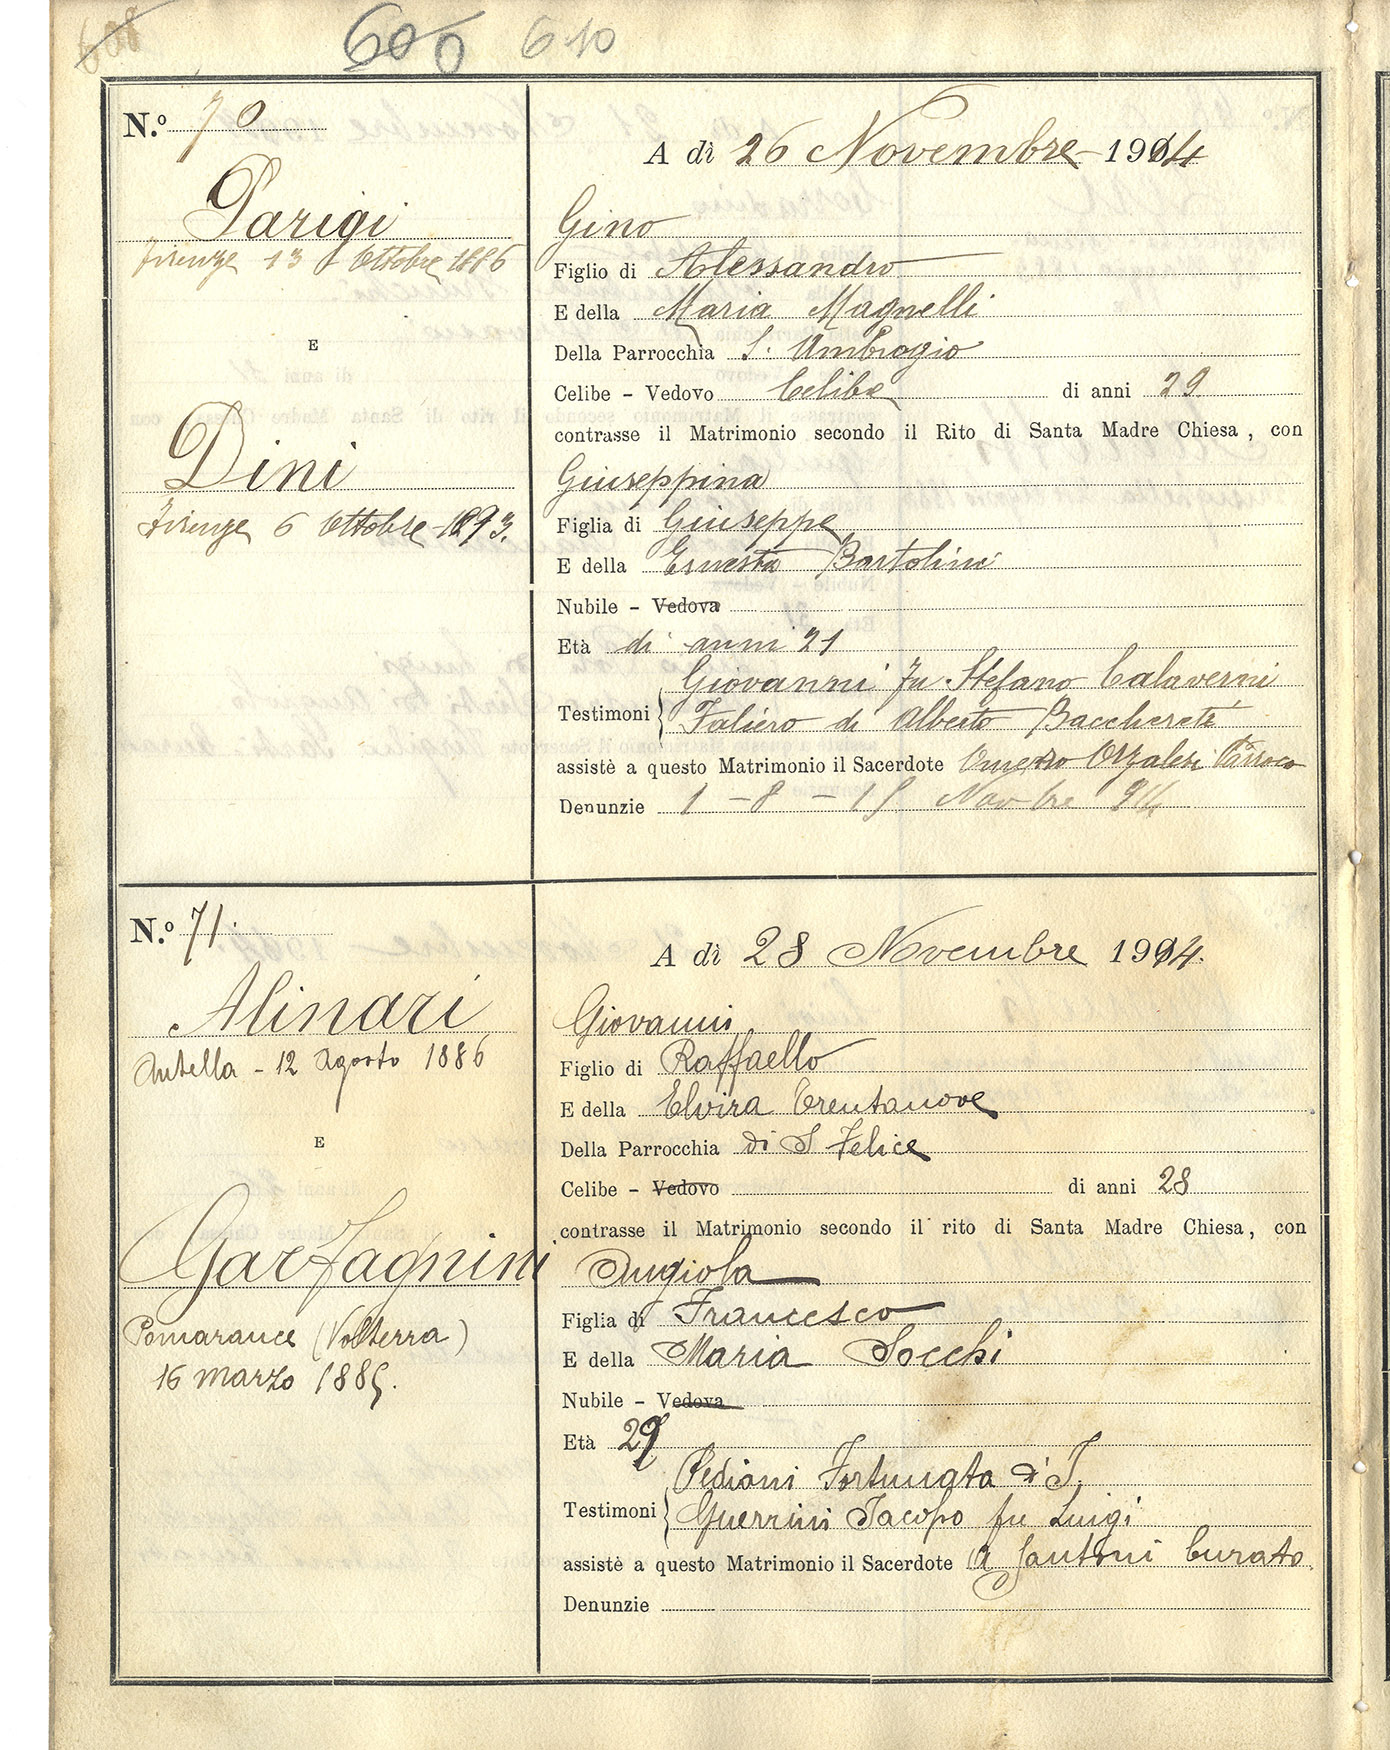 608
600 610
N.º 70
Parigi
Firenze 13 Ottobre 1886
E
Dini
Firenze 6 Ottobre 1893.
A dì 26 Novembre 1914
Gino
Figlio di Alessandro
E della Maria Magnelli
Della Parrocchia S. Ambrogio
Celibe - Vedovo Celibe di anni 29
contrasse il Matrimonio secondo il Rito di Santa Madre Chiesa, con
Giuseppina
Figlia di Giuseppe
E della Ernesta Bartolini
Nubile - Vedova
Età di anni 21
Giovanni fu Stefano Calaverni
Testimoni Faliero di Alberto Baccheretti
assistè a questo Matrimonio il Sacerdote Orzalesi Parroco
Denunzie 1 - 8 - 15 Novbre 914
N.º 71.
Alinari
Antella - 12 Agosto 1886
E
Garfagnini
Pomarance (Volterra)
16 marzo 1885.
A dì 28 Novembre 1914.
Giovanni
Figlio di Raffaello
E della Elvira Trentanove
Della Parrocchia di S Felice
Celibe - Vedovo di anni 28
contrasse il Matrimonio secondo il rito di Santa Madre Chiesa, con
Angiola
Figlia di Francesco
E della Maria Socchi
Nubile - Vedova
Età 29
Pediani Fortunata di T.
Testimoni Guerrini Jacopo fu Luigi
assistè a questo Matrimonio il Sacerdote A Santoni Curato
Denunzie